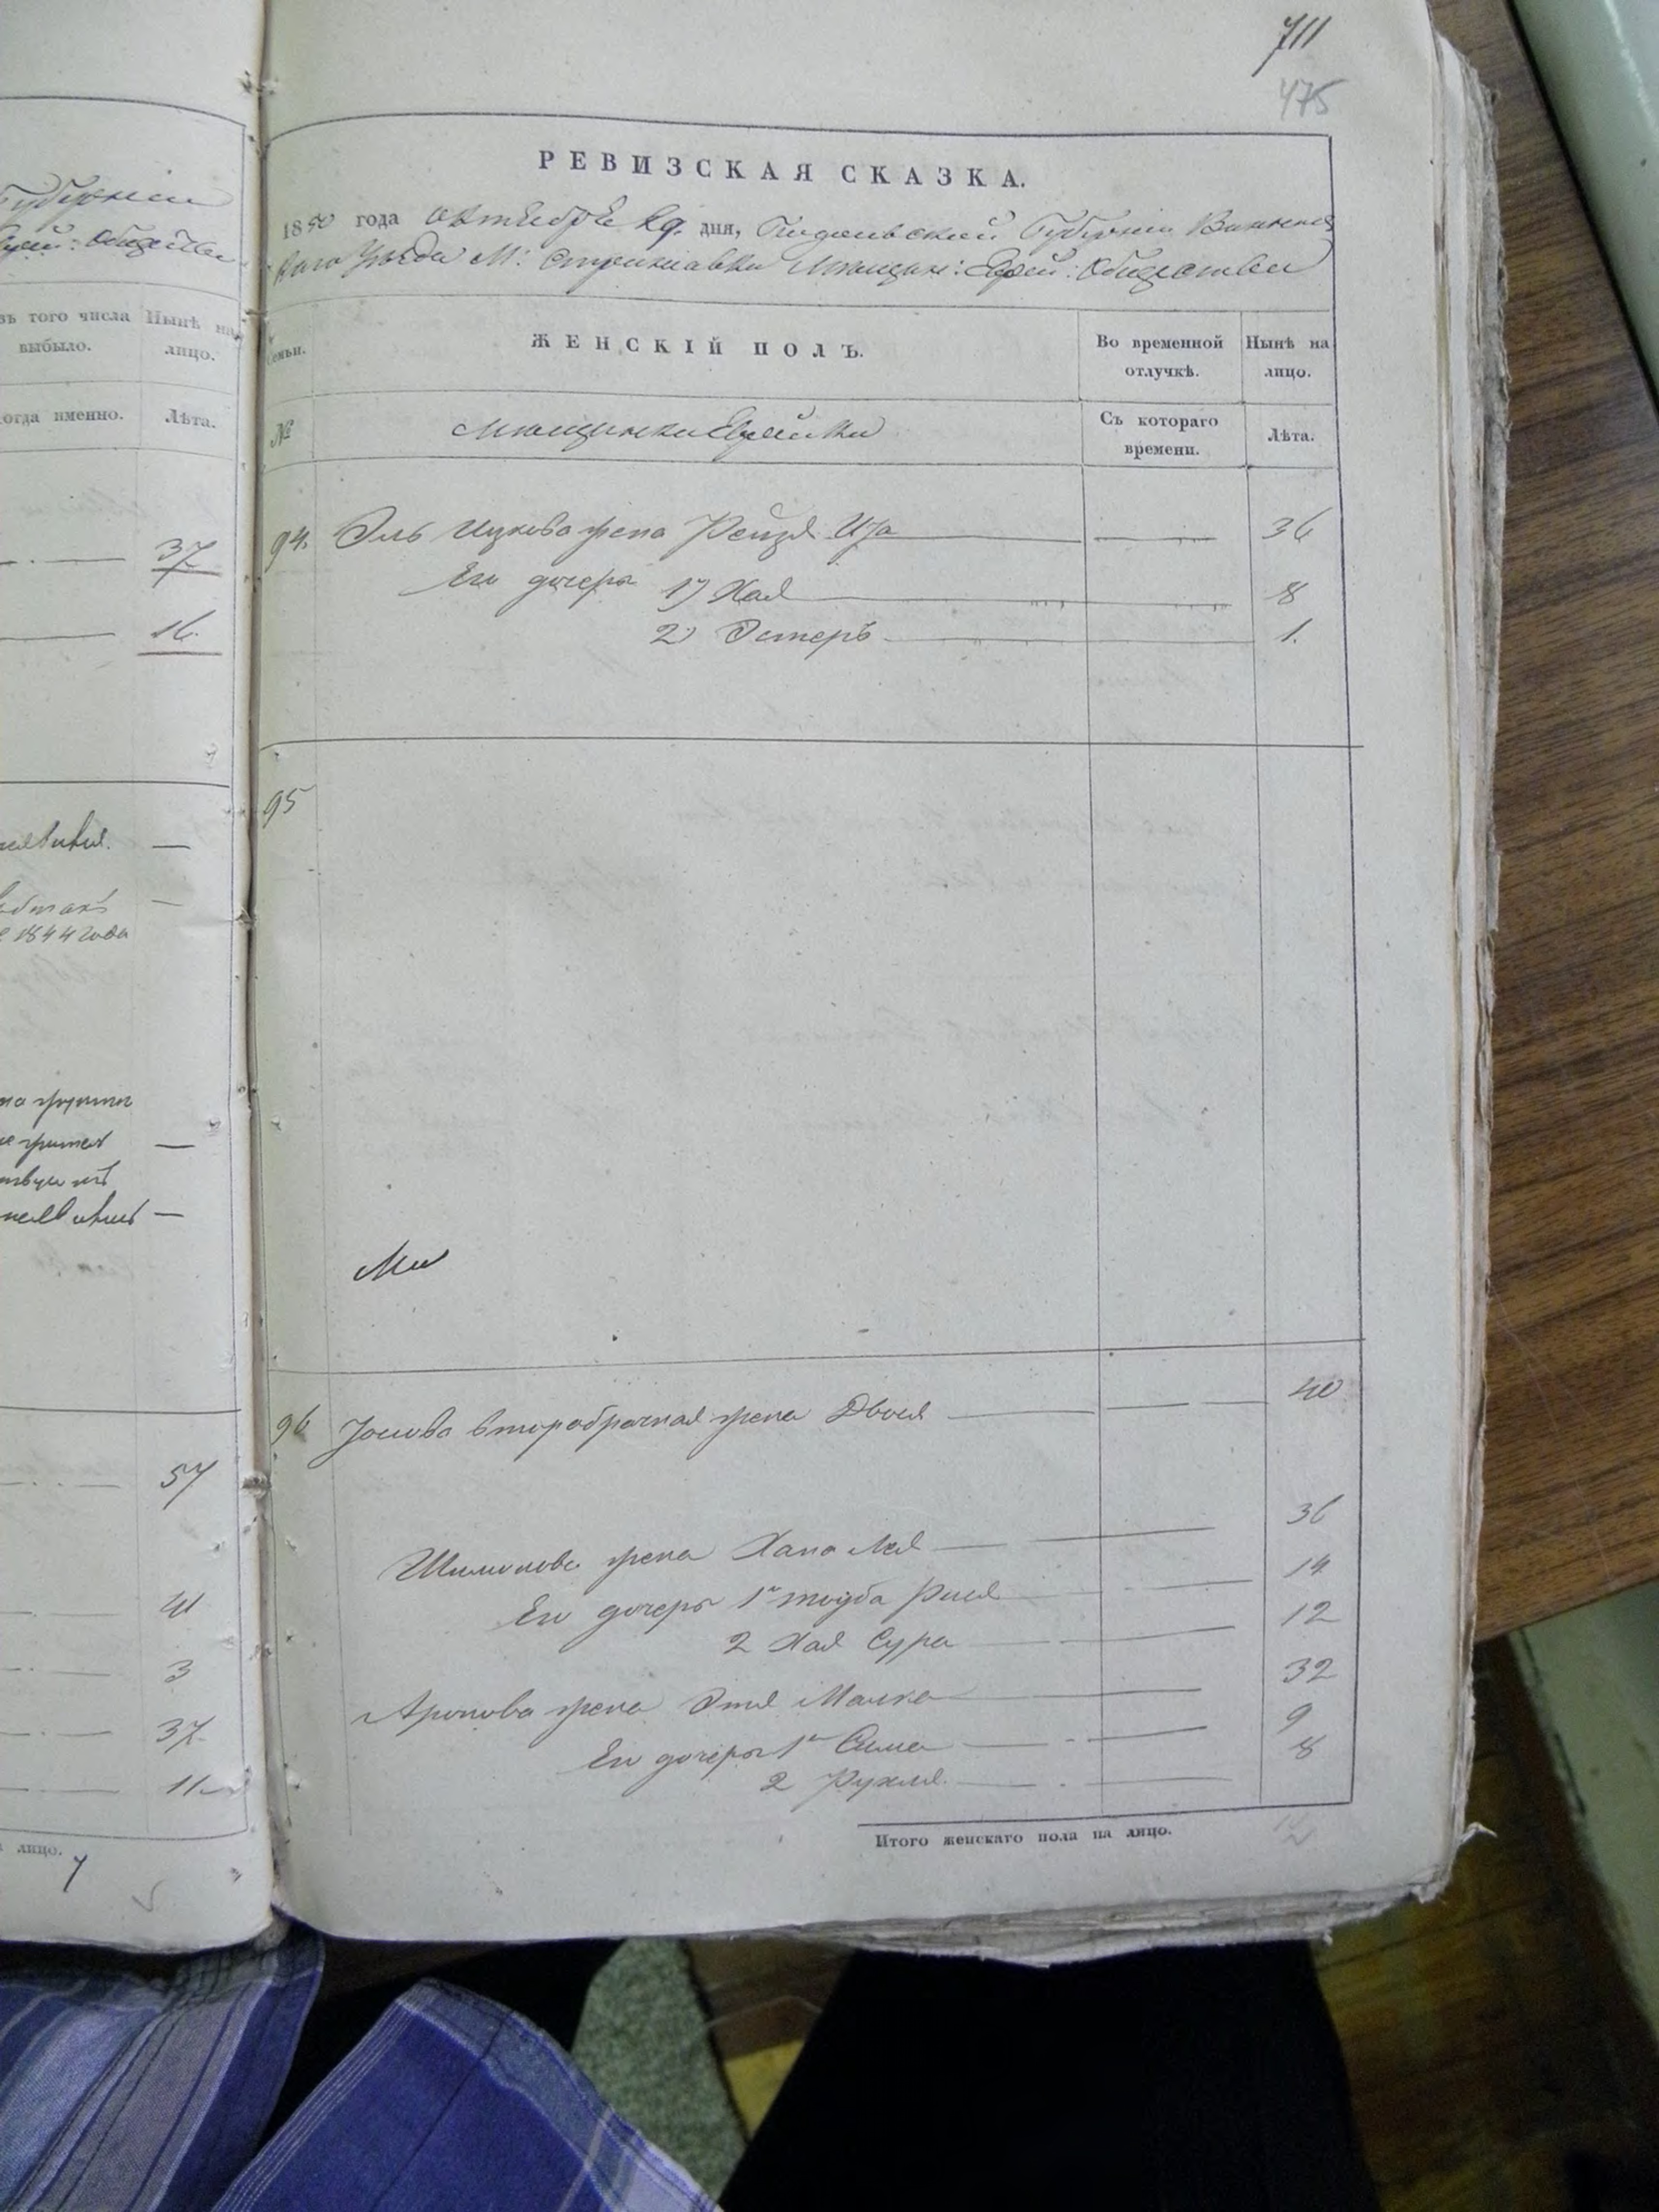 711
475
РЕВИЗСКАЯ СКАЗКА.
1850 года октября 29. дня, Подольской Губерніи Винниц
каго Уѣзда М: Стрижавки Мѣщан: Еврей: Общества
Губерніи
Еврей: Общества
изъ того числа выбыло.
Нынѣ на лицо.
Когда именно.
Лѣта.
37
16.
1844 года
57
41
3
37
11
лицо. 7
Семьи.
ЖЕНСКІЙ ПОЛЪ.
Во временной отлучкѣ.
Нынѣ на лицо.
№
Мѣщанки Еврейки
Съ котораго времени.
Лѣта.
94. Эль Ицкова жена Рейзя 36
Его дочери 1) Хая 8
2) Эстеръ 1.
95
96 Іосиова второбрачная жена Двося 40
Шимонова жена Хана Лея 36
Его дочери 1я тойба Рися 14
2 Хая Сура 12
Аронова жена Этя Малка 32
Его дочери 1я Сима 9
2 Рухля 8
Итого женскаго пола на лицо.